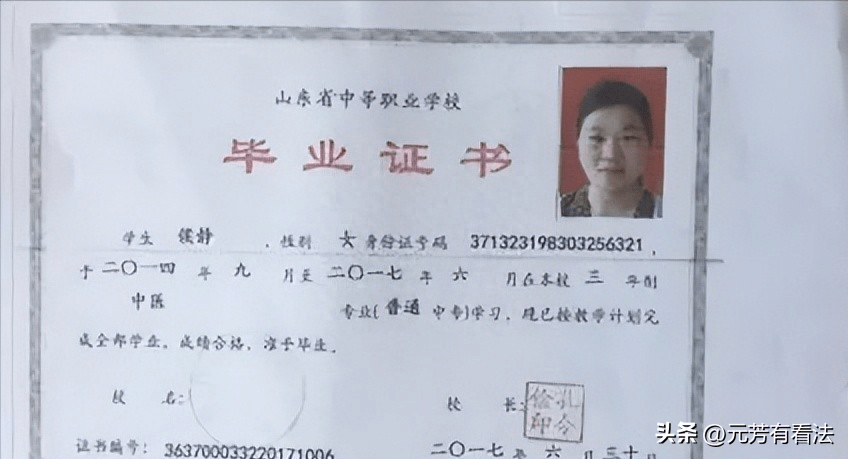 山东省中等职业学校
毕业证书
学生 侯静 ，性别 女 身份证号码 371323198303256321，
于 二〇一四 年 九 月至 二〇一七 年 六 月在本校 三 年制
中医 专业(普通中专)学习，现已按教学计划完
成全部学业，成绩合格，准予毕业。
校 名: 校 长:
证书编号: 363700033220171006 二〇一七年 六 月三十日
头条 @元芳有看法